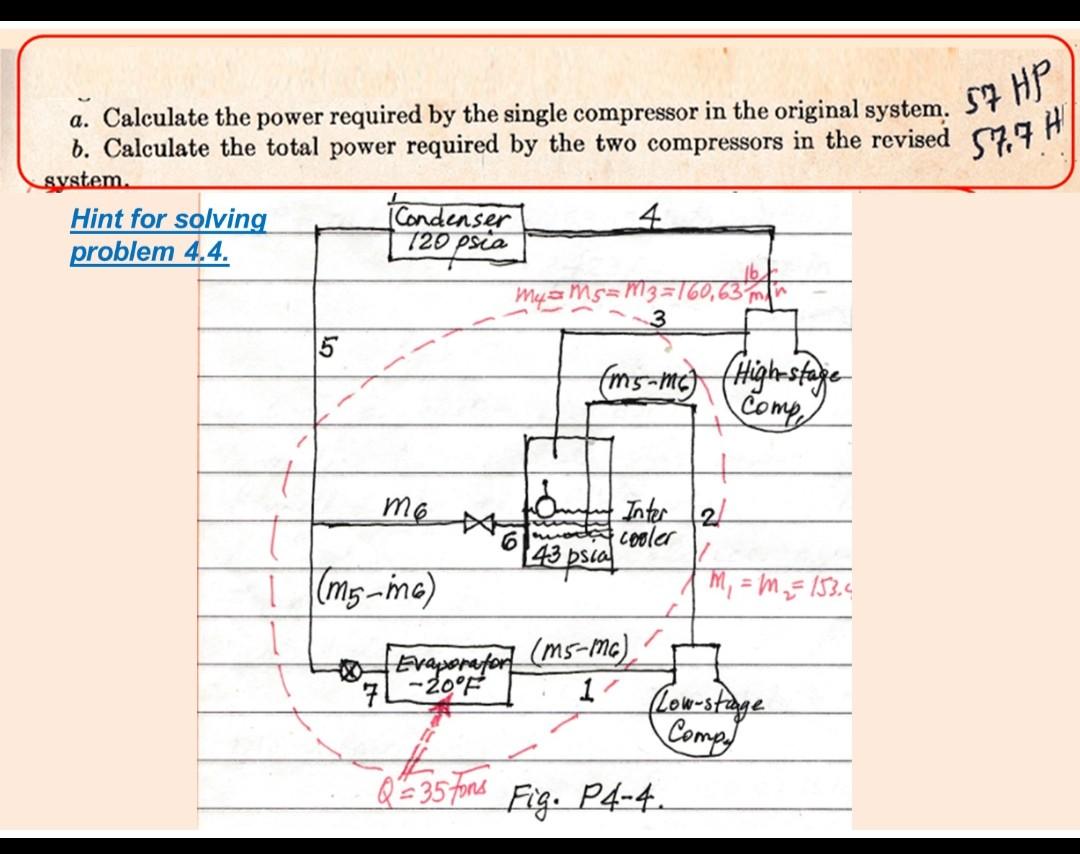 a. Calculate the power required by the single compressor in the original system. 57 HP
b. Calculate the total power required by the two compressors in the revised 57.7 H
system.
Hint for solving
problem 4.4.
Condenser
120 psia
4
m4 = m5 = m3 = 160,63 lb/min
3
5
(m5-m6)
High-stage
Comp.
m6
6
Inter
cooler
43 psia
2
(m5-ṁ6)
m1 = m2 = 153.
(m5-m6)
Evaporator
-20°F
7
1
Low-stage
Comp.
Q = 35 Tons
Fig. P4-4.